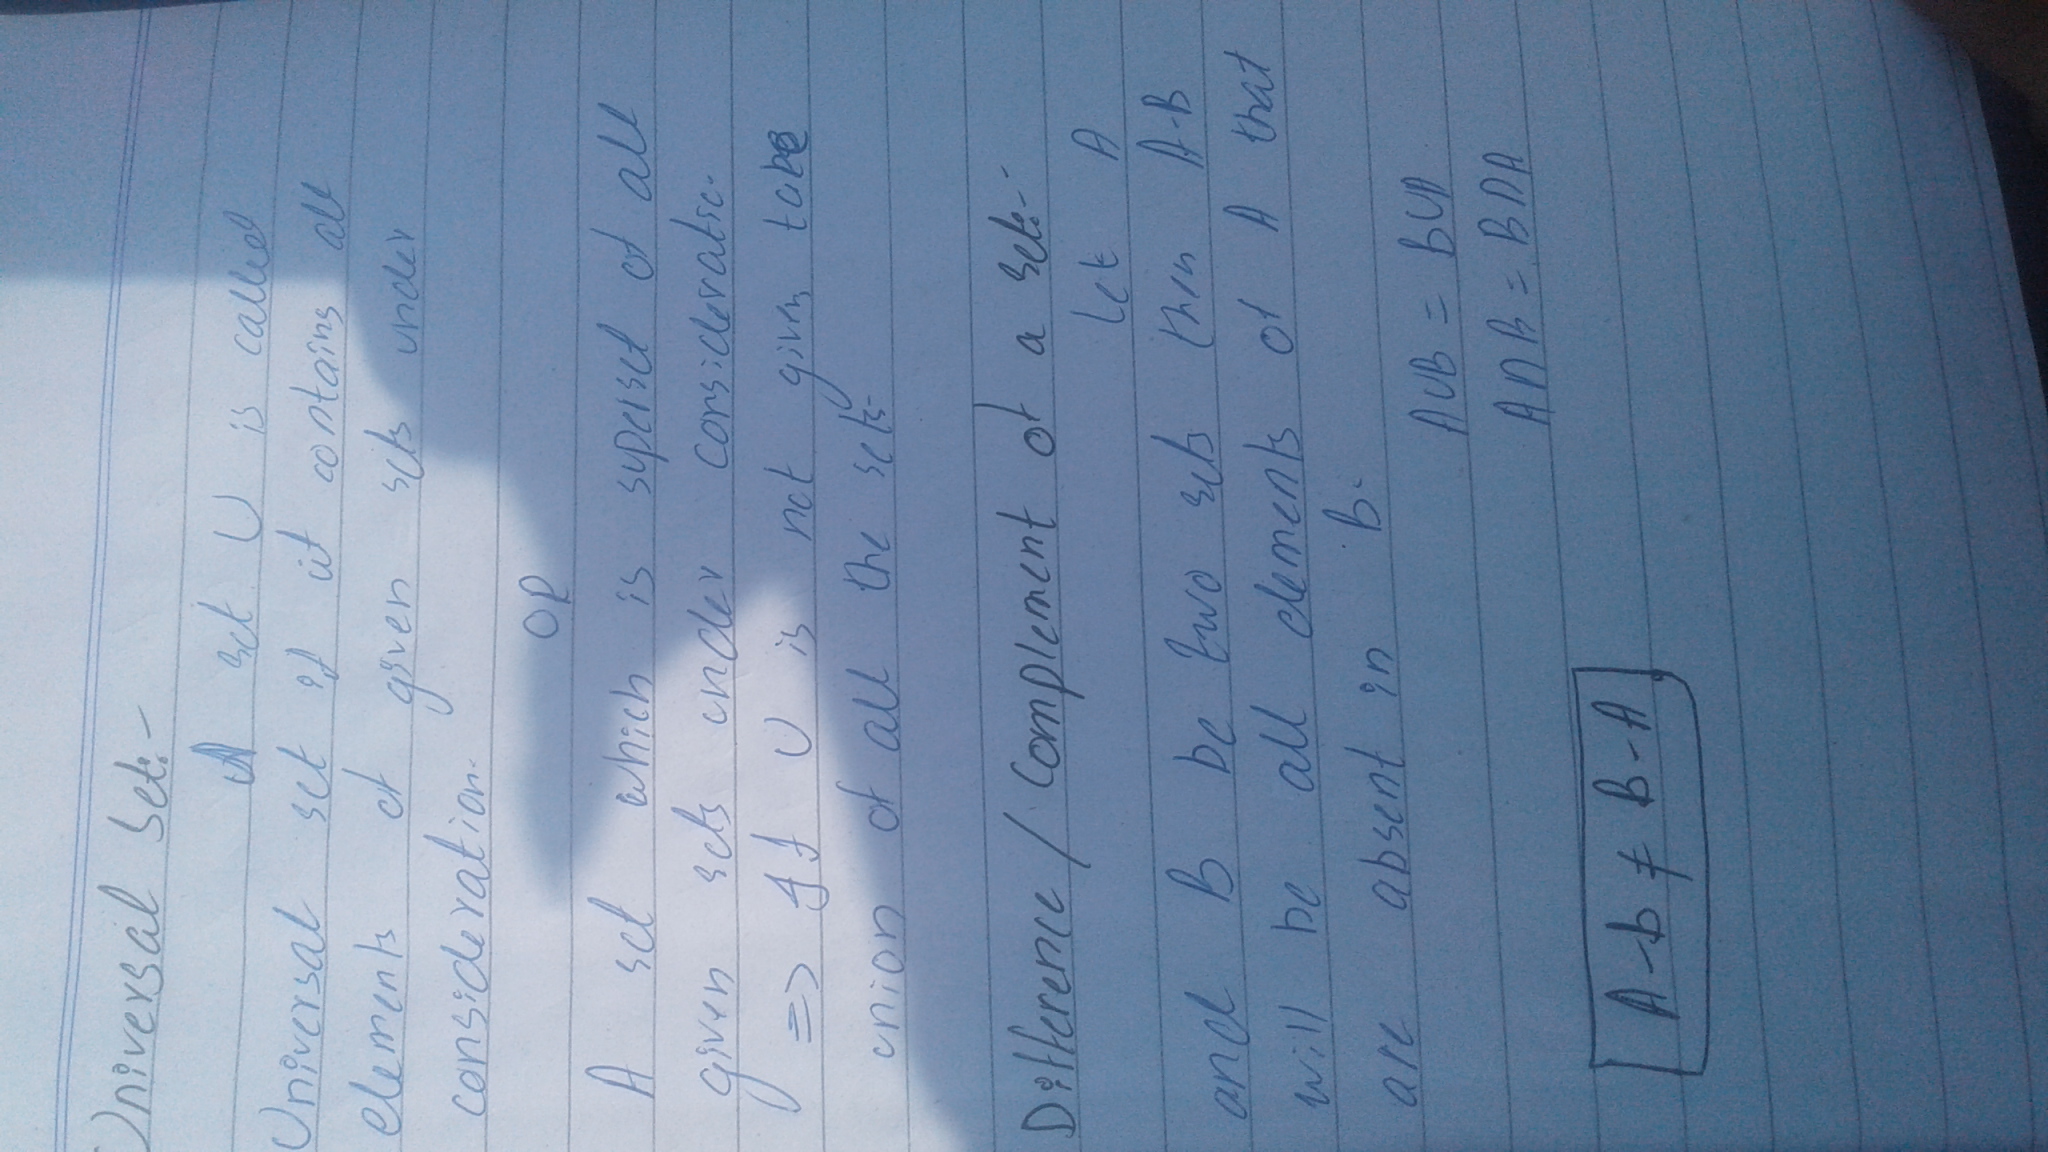 Universal Set:-
A set U is called
Universal set if it contains all
elements of given sets under
consideration.
OR
A set which is superset of all
given sets under consideratio.
=> If U is not given take
union of all the sets-
Difference / Complement of a set:-
let A
and B be two sets then A-B
will be all elements of A that
are absent in B.
A∪B = B∪A
A∩B = B∩A
A-b ≠ B-A